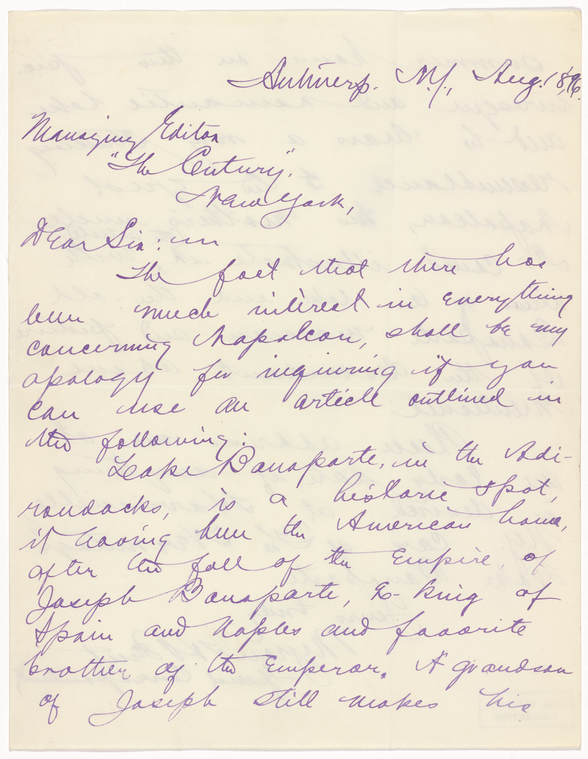 Antwerp. N.Y., Aug. 18, '96
Managing Editor
"The Century".
New York,
Dear Sir:
The fact that there has
been much interest in everything
concerning Napoleon, shall be my
apology for inquiring if you
can use an article outlined in
the following:
Lake Bonaparte, in the Adi-
rondacks, is a historic spot,
it having been the American home,
after the fall of the Empire, of
Joseph Bonaparte, Ex-king of
Spain and Naples and favorite
brother of the Emperor. A grandson
of Joseph still makes his